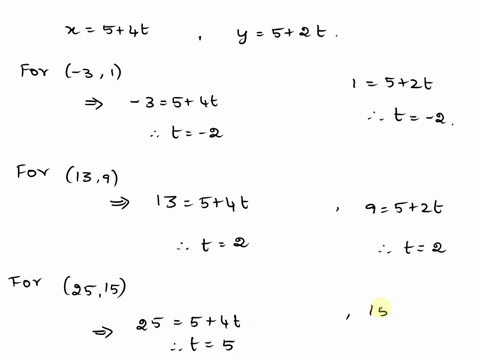 x = 5+4t , y = 5+2t.
For (-3, 1)
⇒ -3 = 5+4t 1 = 5+2t
∴ t = -2 ∴ t = -2.
For (13, 9)
⇒ 13 = 5+4t , 9 = 5+2t
∴ t = 2 ∴ t = 2
For (25, 15)
⇒ 25 = 5+4t , 15
∴ t = 5